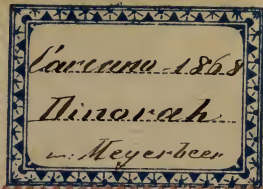 Carcano 1868
Dinorah
v. Meyerbeer